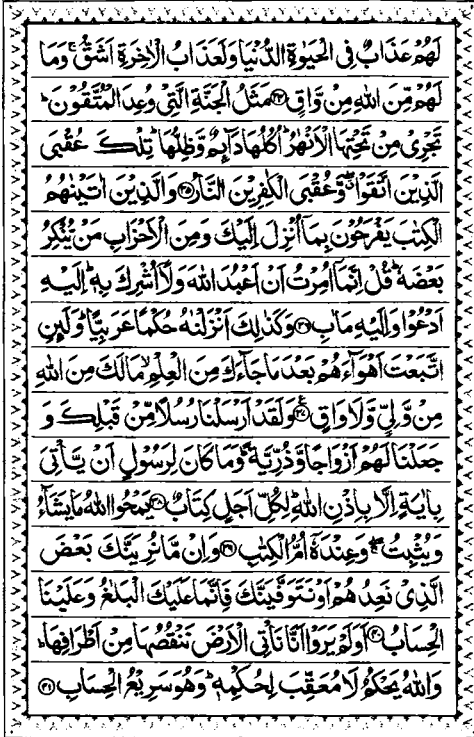 لَهُمْ عَذَابٌ فِی الْحَیٰوةِ الدُّنْیَا وَلَعَذَابُ الْاٰخِرَةِ اَشَقُّ ۚ وَمَا
لَهُمْ مِّنَ اللّٰهِ مِنْ وَّاقٍ ﴿۳۴﴾ مَثَلُ الْجَنَّةِ الَّتِیْ وُعِدَ الْمُتَّقُوْنَ ؕ
تَجْرِیْ مِنْ تَحْتِهَا الْاَنْهٰرُ ؕ اُكُلُهَا دَآىِٕمٌ وَّظِلُّهَا ؕ تِلْكَ عُقْبَی
الَّذِیْنَ اتَّقَوْا ۖۗ وَّعُقْبَی الْكٰفِرِیْنَ النَّارُ ﴿۳۵﴾ وَالَّذِیْنَ اٰتَیْنٰهُمُ
الْكِتٰبَ یَفْرَحُوْنَ بِمَاۤ اُنْزِلَ اِلَیْكَ وَمِنَ الْاَحْزَابِ مَنْ یُّنْكِرُ
بَعْضَهٗ ؕ قُلْ اِنَّمَاۤ اُمِرْتُ اَنْ اَعْبُدَ اللّٰهَ وَلَاۤ اُشْرِكَ بِهٖ ؕ اِلَیْهِ
اَدْعُوْا وَاِلَیْهِ مَاٰبِ ﴿۳۶﴾ وَكَذٰلِكَ اَنْزَلْنٰهُ حُكْمًا عَرَبِیًّا ؕ وَلَىِٕنِ
اتَّبَعْتَ اَهْوَآءَهُمْ بَعْدَ مَا جَآءَكَ مِنَ الْعِلْمِ ۙ مَا لَكَ مِنَ اللّٰهِ
مِنْ وَّلِیٍّ وَّلَا وَاقٍ ﴿۳۷﴾ وَلَقَدْ اَرْسَلْنَا رُسُلًا مِّنْ قَبْلِكَ وَ
جَعَلْنَا لَهُمْ اَزْوَاجًا وَّذُرِّیَّةً ؕ وَمَا كَانَ لِرَسُوْلٍ اَنْ یَّاْتِیَ
بِاٰیَةٍ اِلَّا بِاِذْنِ اللّٰهِ ؕ لِكُلِّ اَجَلٍ كِتَابٌ ﴿۳۸﴾ یَمْحُوا اللّٰهُ مَا یَشَآءُ
وَیُثْبِتُ ۖۚ وَعِنْدَهٗۤ اُمُّ الْكِتٰبِ ﴿۳۹﴾ وَاِنْ مَّا نُرِیَنَّكَ بَعْضَ
الَّذِیْ نَعِدُهُمْ اَوْ نَتَوَفَّیَنَّكَ فَاِنَّمَا عَلَیْكَ الْبَلٰغُ وَعَلَیْنَا
الْحِسَابُ ﴿۴۰﴾ اَوَلَمْ یَرَوْا اَنَّا نَاْتِی الْاَرْضَ نَنْقُصُهَا مِنْ اَطْرَافِهَا ؕ
وَاللّٰهُ یَحْكُمُ لَا مُعَقِّبَ لِحُكْمِهٖ ؕ وَهُوَ سَرِیْعُ الْحِسَابِ ﴿۴۱﴾